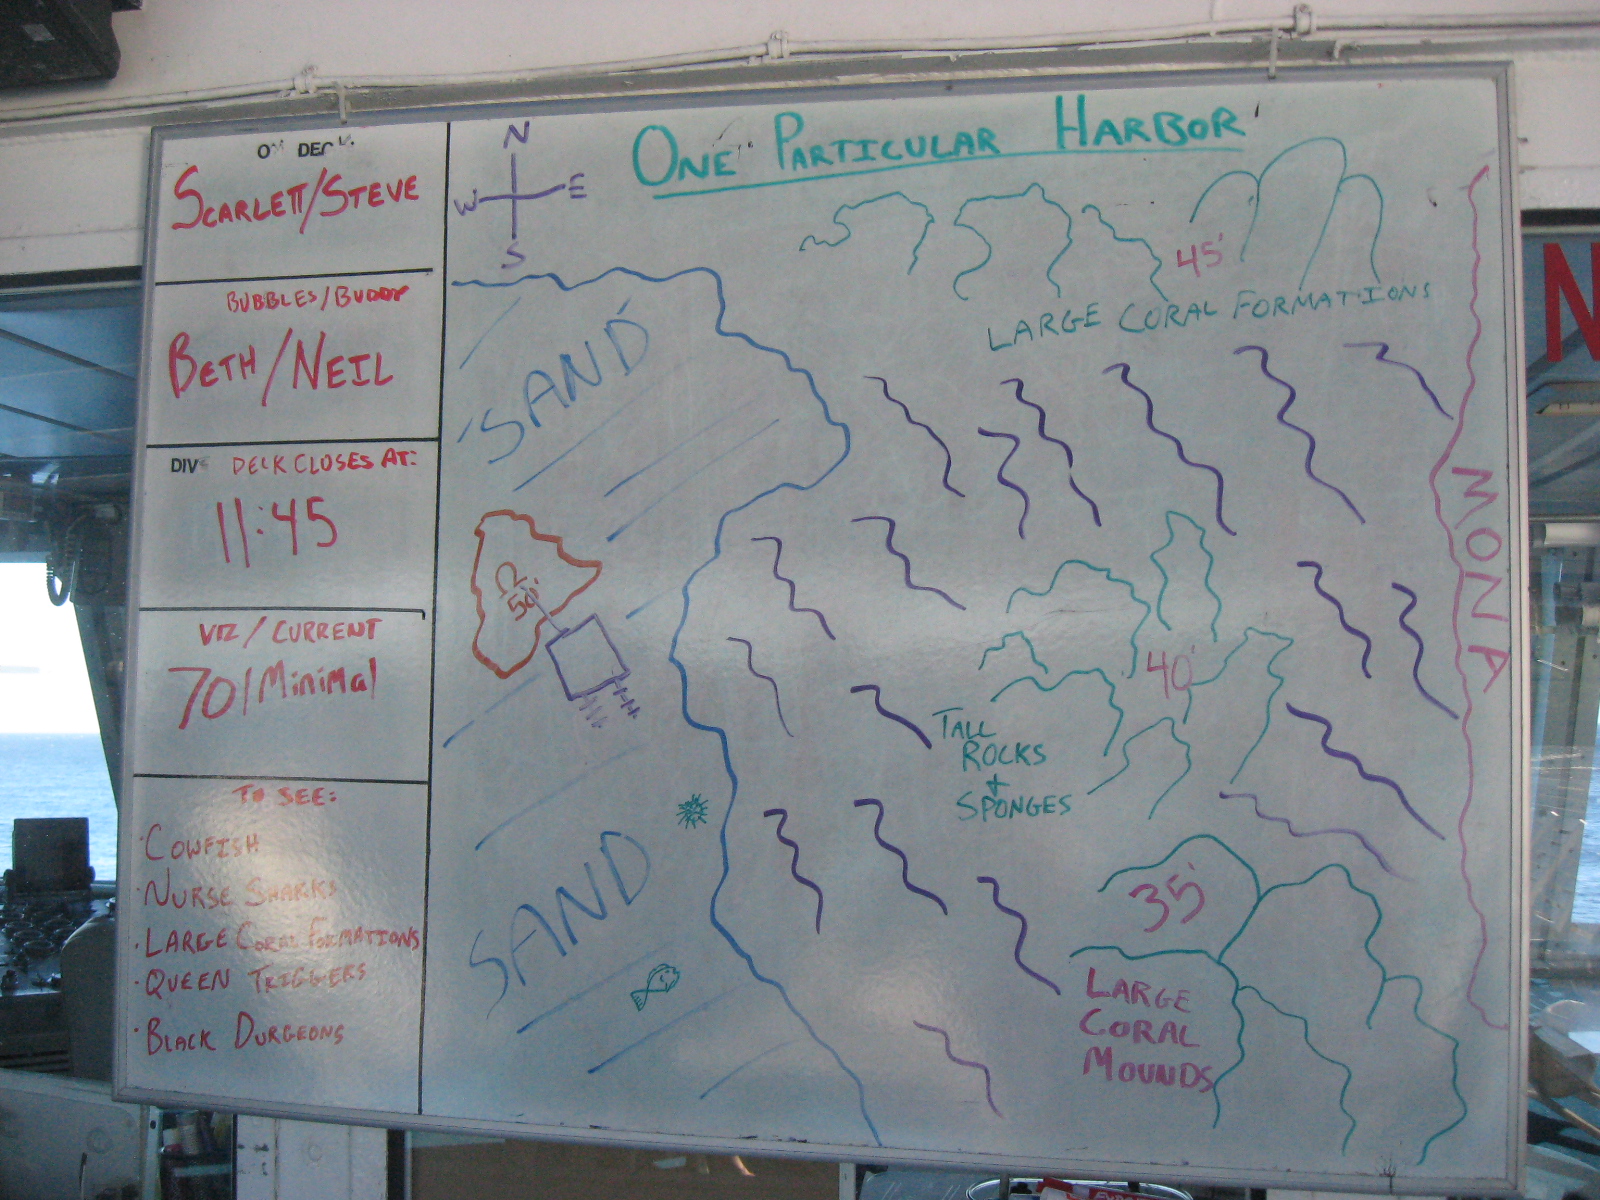 ON DECK
SCARLETT/STEVE
BUBBLES/BUDDY
BETH/NEIL
DIVE DECK CLOSES AT:
11:45
VIZ/CURRENT
70/Minimal
TO SEE:
·COWFISH
·NURSE SHARKS
·LARGE CORAL FORMATIONS
·QUEEN TRIGGERS
·BLACK DURGEONS
N
W E
S
ONE PARTICULAR HARBOR
45'
LARGE CORAL FORMATIONS
SAND
MONA
50'
40'
TALL
ROCKS
+
SPONGES
SAND
35'
LARGE
CORAL
MOUNDS
N